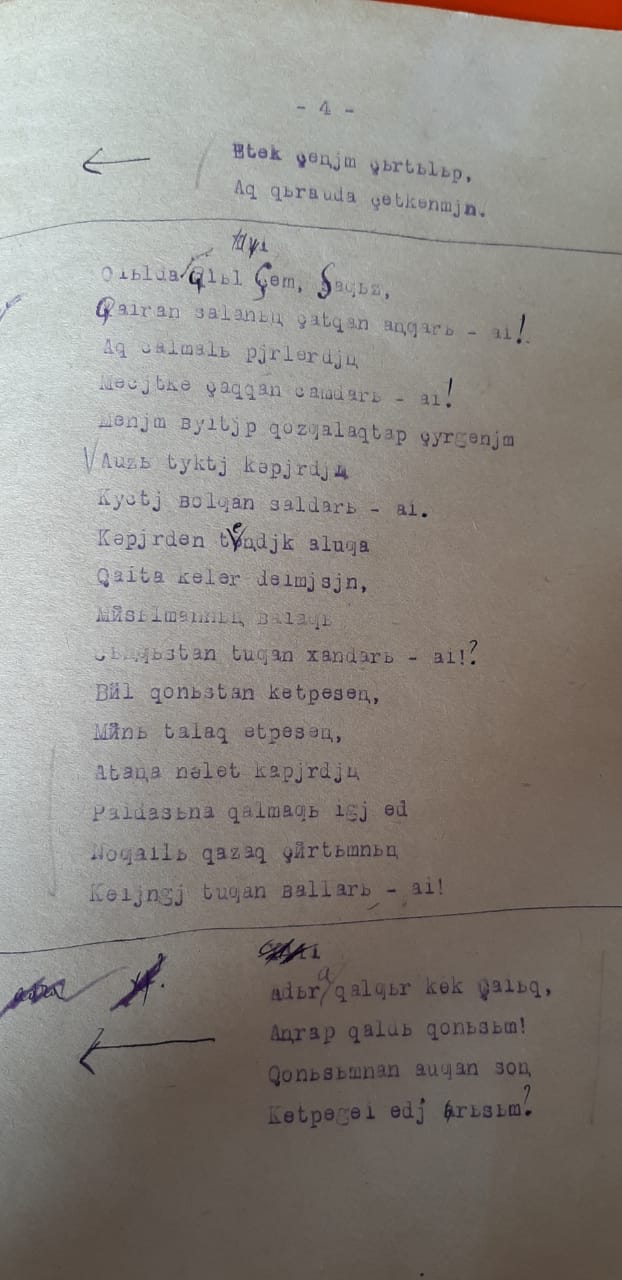 - 4 -
Etek çeŋjm çьrtьlьp,
Aq qьrauda çetkenmjn.
Oiьlda Qiьl Çem, Şaƣьz,
Qairan salanьŋ çatqan aŋƣarь - ai!
Aq calmalь pjrlerdjŋ
Mecjtke çaqqan camdarь - ai!
Menjm ʙyitjp qozƣalaqtap çyrgenjm
Auzь tyktj kəpjrdjŋ
Kyctj ʙolƣan saldarь - ai.
Kəpjrden teŋdjk aluƣa
Qaita keler deimjsjn,
Mŭsьlmannьŋ ʙalaƣь
tuƣan xandarь - ai!?
Bŭl qonьstan ketpeseŋ,
Mŭnь talaq etpeseŋ,
Ataŋa nəlet kəpjrdjŋ
Paidasьna qalmaƣь igj ed
Noƣailь qazaq çŭrtьmnьŋ
Keijngj tuƣan ʙallarь - ai!
adьra qalƣьr kək Çaiьq,
Aŋrap qaldь qonьsьm!
Qonьsьmnan auƣan soŋ
Ketpegei edj ьrьsьm?